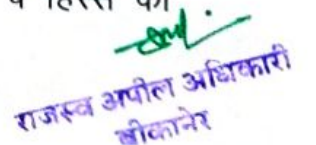 हिस्से का
राजस्व अपील अधिकारी
बीकानेर